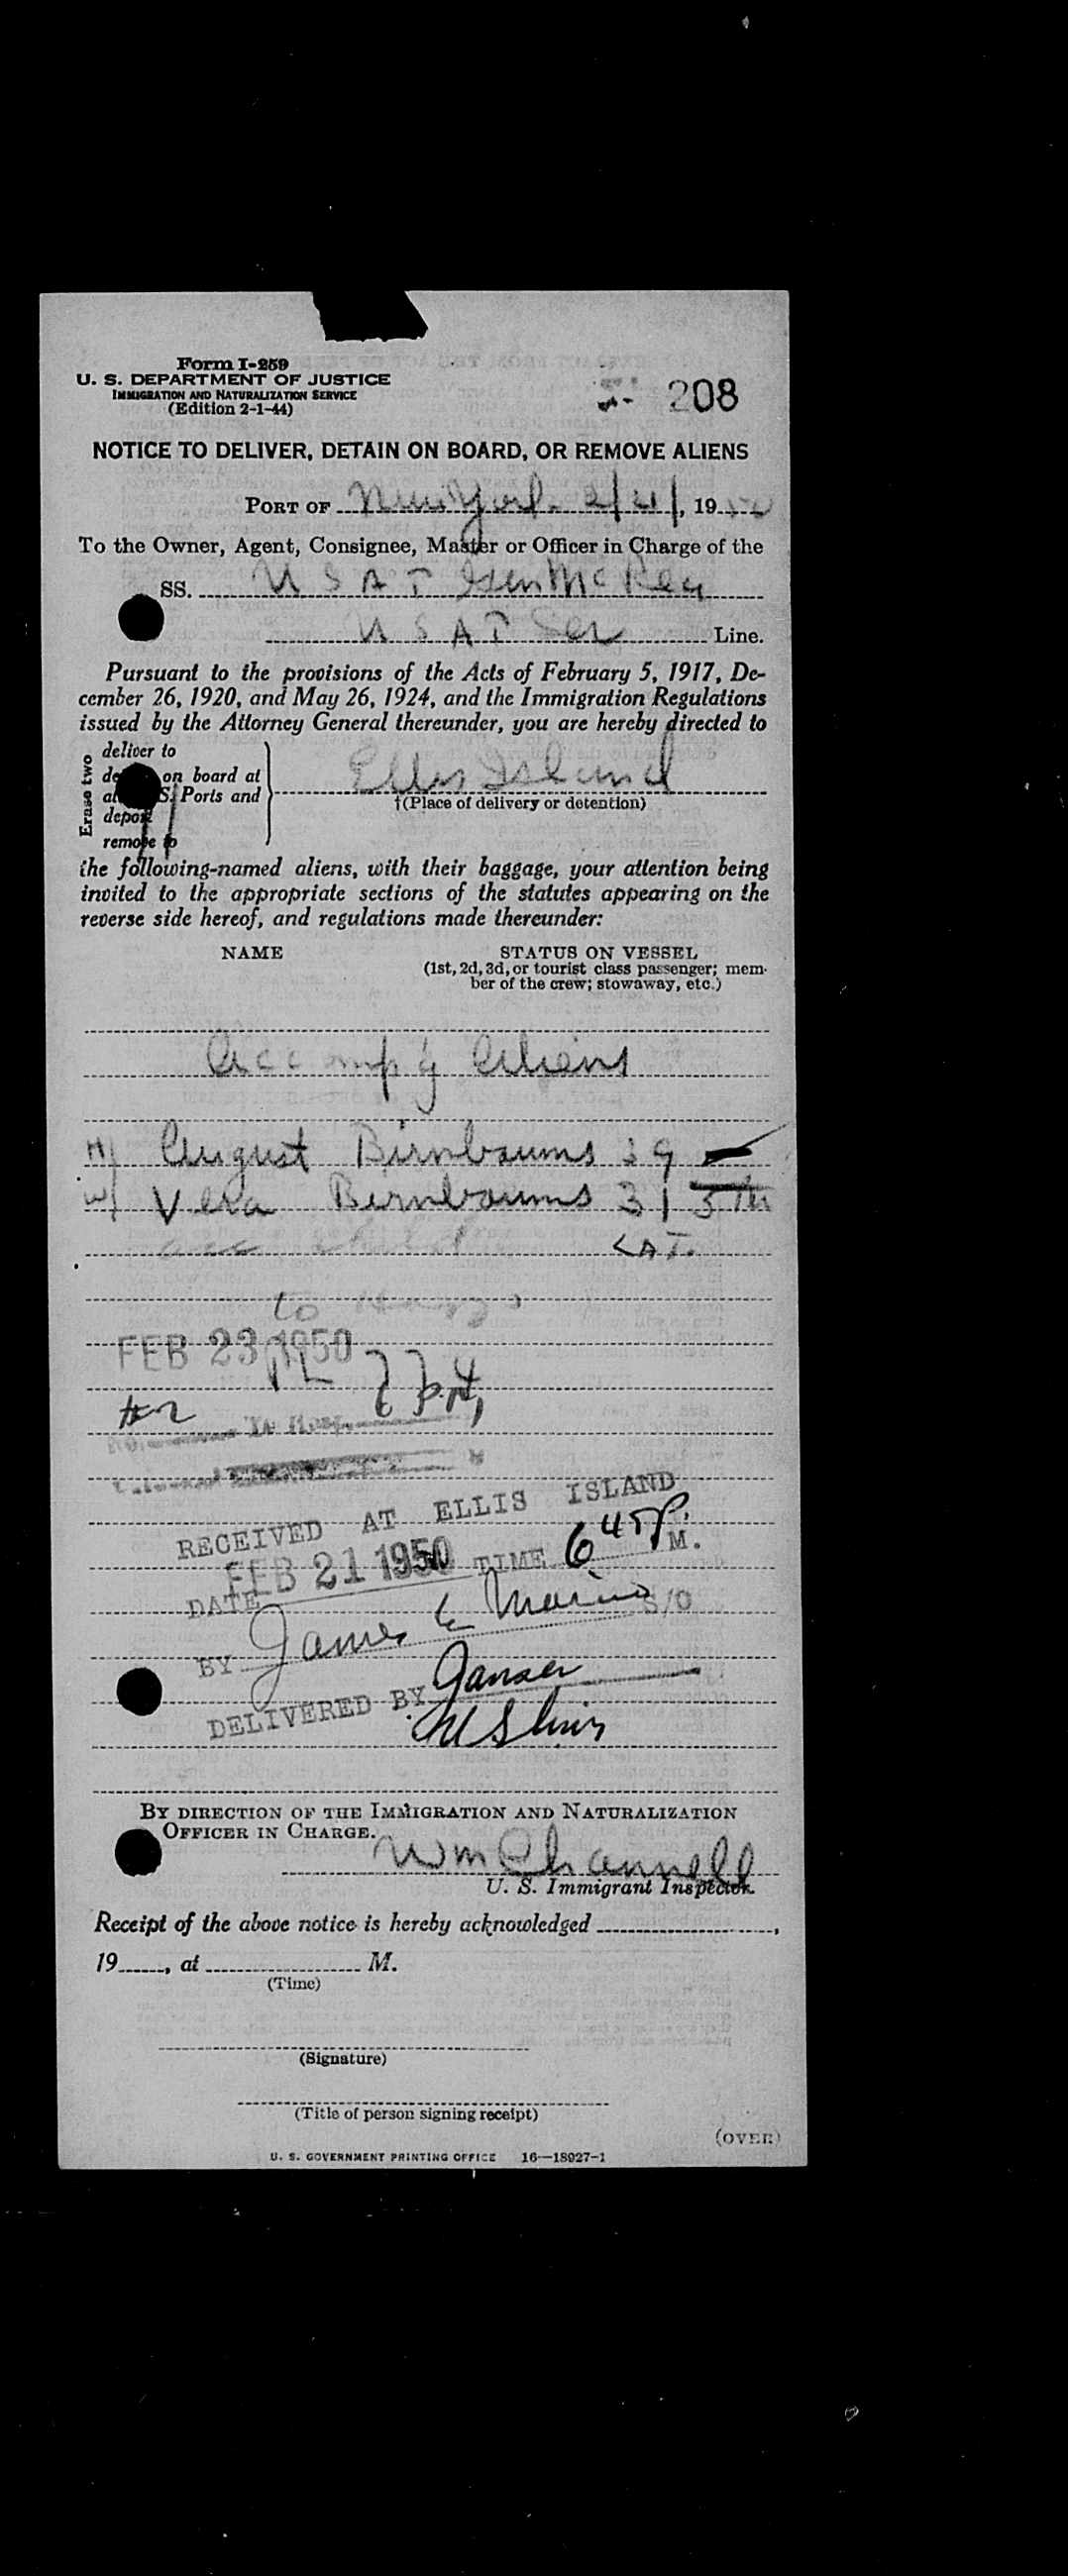 Form I-259
U. S. DEPARTMENT OF JUSTICE
IMMIGRATION AND NATURALIZATION SERVICE
(Edition 2-1-44)
208
NOTICE TO DELIVER, DETAIN ON BOARD, OR REMOVE ALIENS
PORT OF New York 2/21/, 19
To the Owner, Agent, Consignee, Master or Officer in Charge of the
SS. U S A T Gen McRea
U S A T Ser Line.
Pursuant to the provisions of the Acts of February 5, 1917, De-
cember 26, 1920, and May 26, 1924, and the Immigration Regulations
issued by the Attorney General thereunder, you are hereby directed to
Erase two
deliver to
on board at
S. Ports and
deport
remove to
Ellis Island
†(Place of delivery or detention)
the following-named aliens, with their baggage, your attention being
invited to the appropriate sections of the statutes appearing on the
reverse side hereof, and regulations made thereunder:
NAME STATUS ON VESSEL
(1st, 2d, 3d, or tourist class passenger; mem-
ber of the crew; stowaway, etc.)
Accompg Aliens
August Birnbaums 39
Vera Birnbaums 31
acc child LAT.
to
FEB 23 1950
#2
RECEIVED AT ELLIS ISLAND
DATE FEB 21 1950 TIME 6 45 P. M.
BY James E Marino S/O
DELIVERED BY Janser
BY DIRECTION OF THE IMMIGRATION AND NATURALIZATION
OFFICER IN CHARGE.
Wm Channell
U. S. Immigrant Inspector.
Receipt of the above notice is hereby acknowledged ,
19 , at M.
(Time)
(Signature)
(Title of person signing receipt)
(OVER)
U. S. GOVERNMENT PRINTING OFFICE 16—18927-1